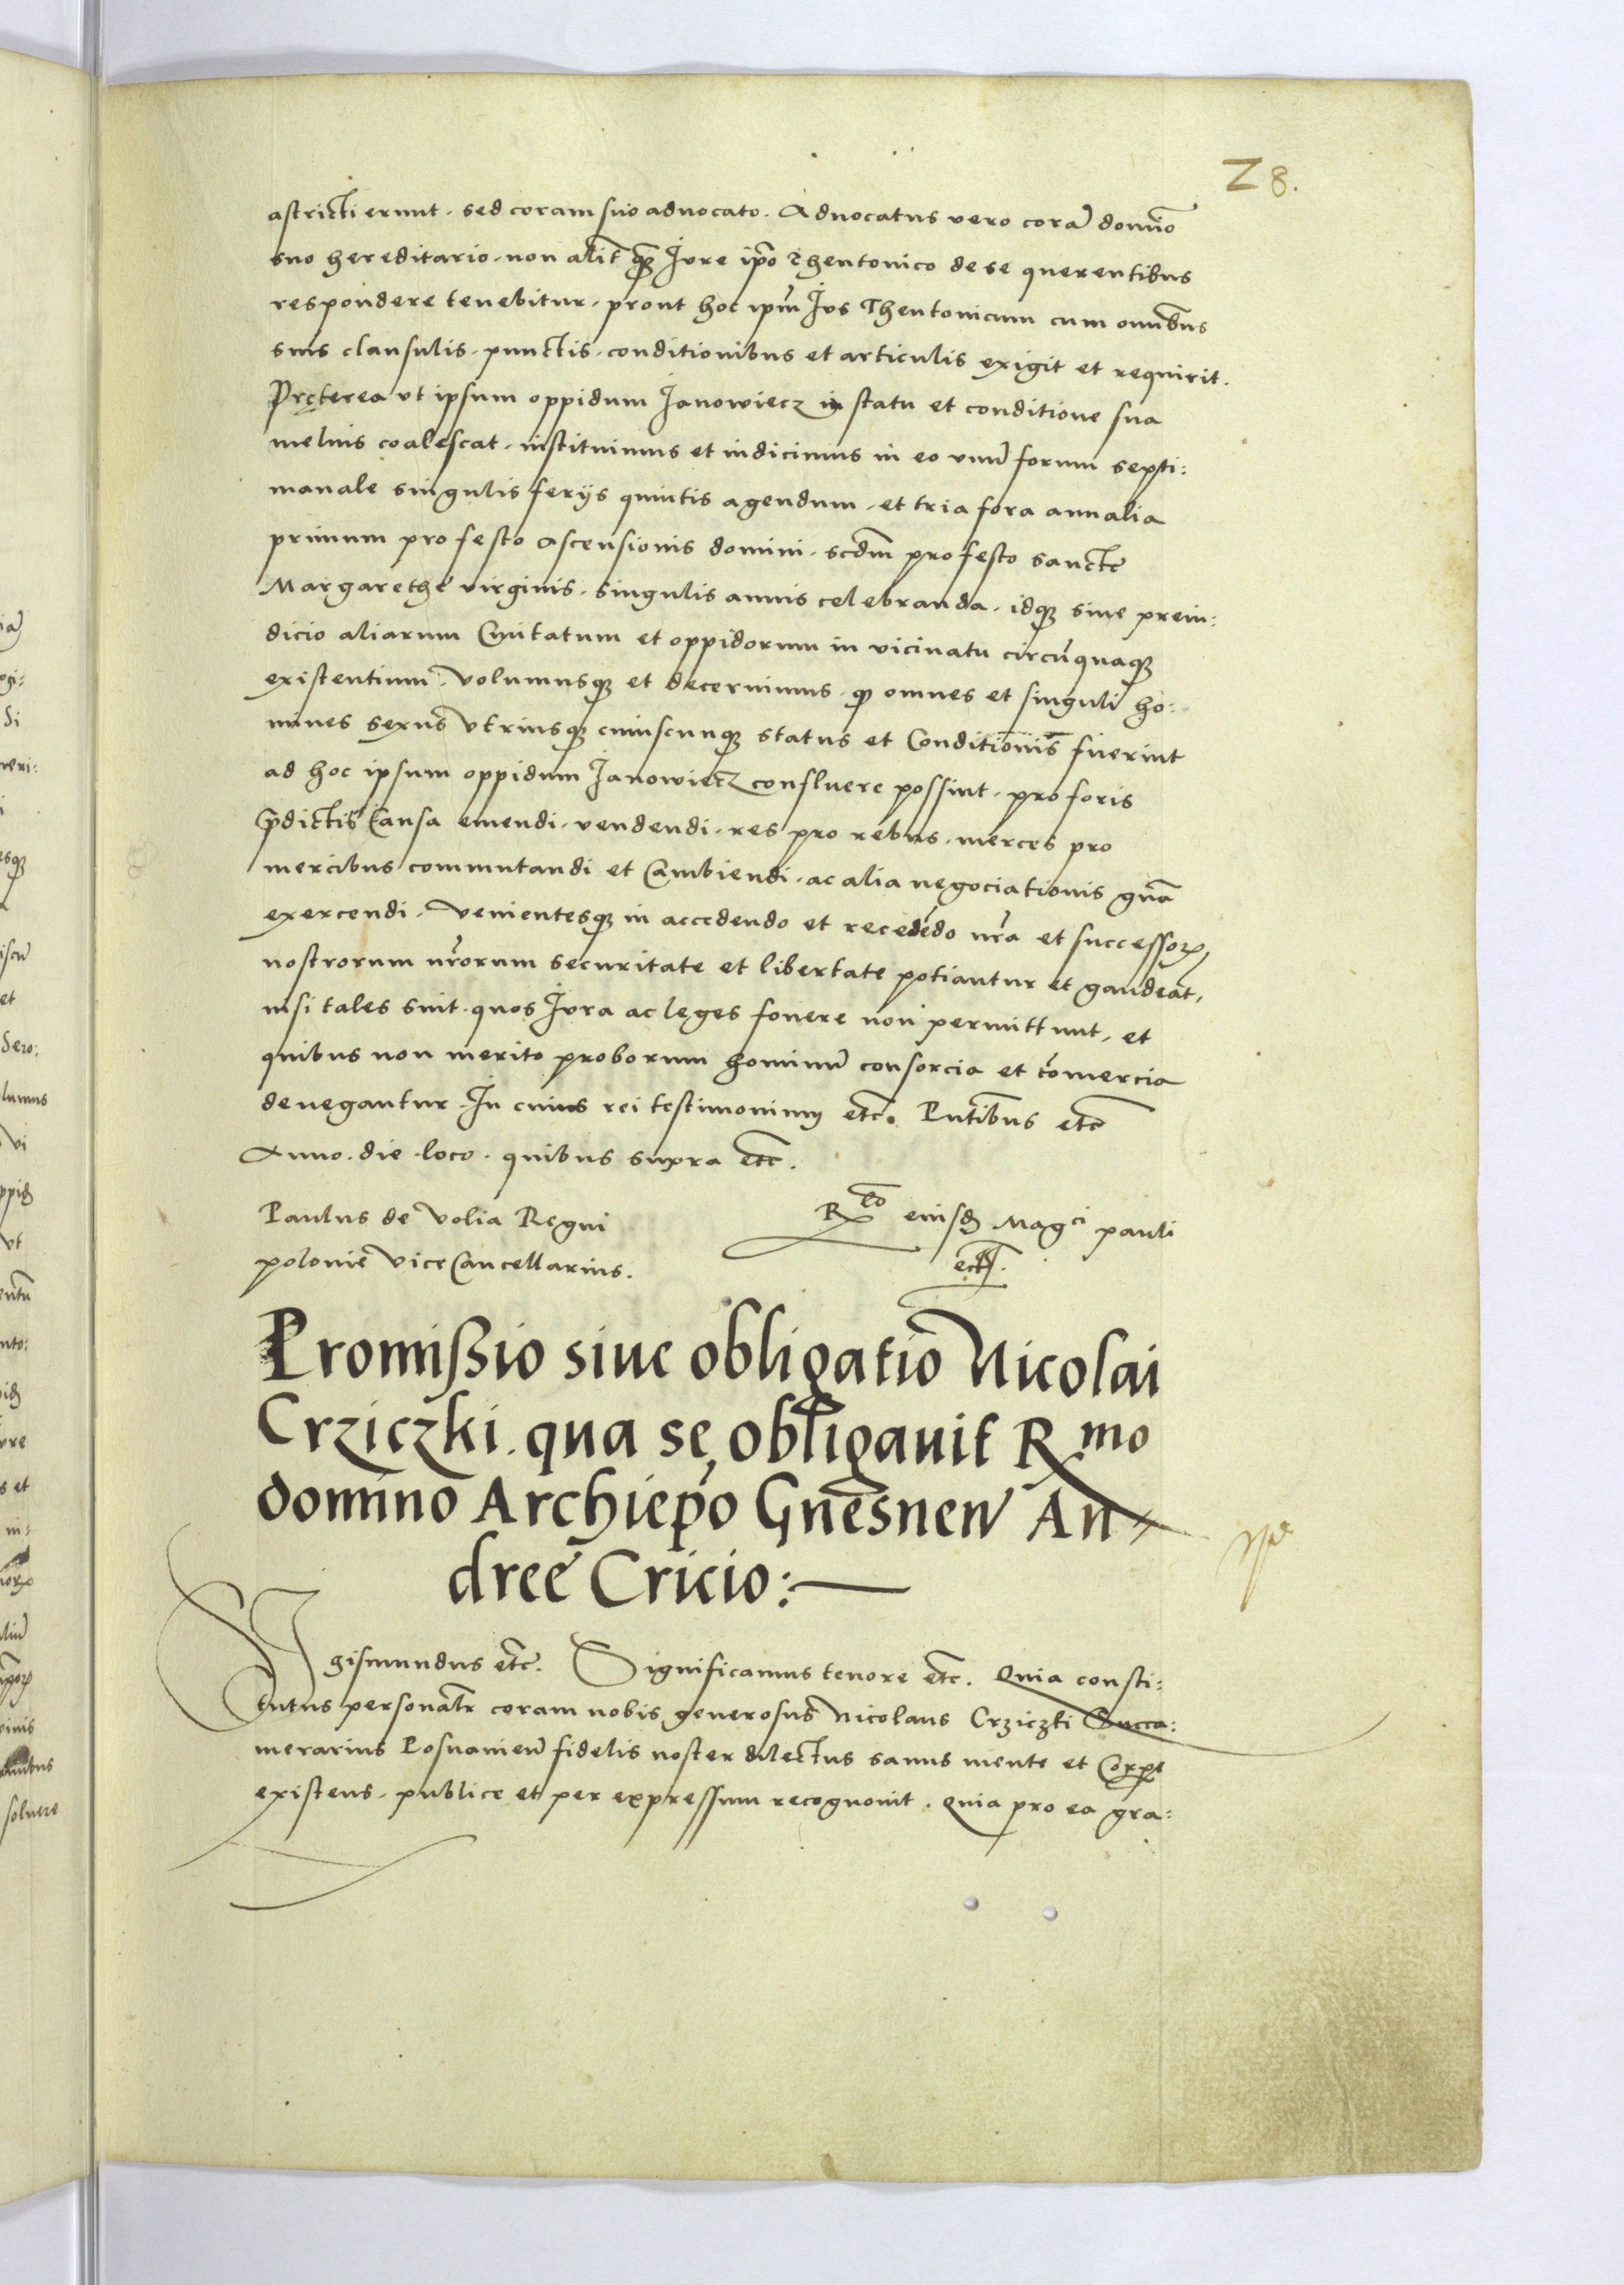 28.
astricti erunt. sed coram suo aduocato. Aduocatus vero corā domīo
suo hereditario. non alit̄ q̄ꝫ Jure ip̄o Theutonico de se querentibus
respondere tenebitur. prout hoc ip̄m Jus Theutonicum cum omībus
suis clausulis. punctis. conditionibus et articulis exigit et requirit.
Pręterea vt ipsum oppidum Janowiecz in statu et conditione sua
melius coalescat. instituimus et indicimus in eo vnū forum septi:
manale singulis ferijs quintis agendum. et tria fora annalia
primum pro festo Ascensionis domini. scd̄m pro festo sancte
Margarethe virginis. singulis annis celebranda. idqꝫ sine preiu:
dicio aliarum Ciuitatum et oppidorum in vicinatu circūquaqꝫ
existentium. Volumusqꝫ et decernimus. qꝫ omnes et singuli ho:
mines sexus vtriusqꝫ cuiuscunqꝫ status et Conditionis fuerint
ad hoc ipsum oppidum Janowiecz confluere possint. pro foris
p̄dictis Causa emendi. vendendi. res pro rebus. merces pro
mercibus commutandi et Cambiendi. ac alia negociationis gn̄a
exercendi. Venientesqꝫ in accedendo et recedēdo nr̄a et successoꝝ
nostrorum nr̄orum securitate et libertate potiantur et gaudeāt.
nisi tales sint. quos Jura ac leges fouere non permittunt. et
quibus non merito proborum hominū consorcia et cōmercia
denegantur. In cuius rei testimonium etc. Pn̄tibus etc
Anno. die. loco. quibus supra etc.
Paulus de Volia Regni
polonie ViceCancellarius.
R^to eiusdꝫ Mag^ci pauli
etc.
Promißio siue obligatio Nicolai
Crziczki. qua se obligauit R^mo
domino Archiep̄o Gnesnen̄ An
dree Cricio:
Sigismundus etc. Significamus tenore etc. Quia consti:
tutus personalr̄ coram nobis generosus Nicolaus Crziczki Succa:
merarius Posnanien̄ fidelis noster dilectus sanus mente et Corpe
existens. publice et per expressum recognouit. Quia pro ea gra: